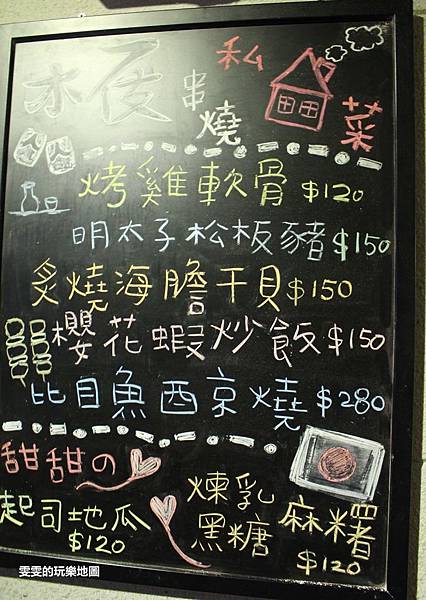 水辰 串燒
私菜
烤雞軟骨 $120
明太子松板豬 $150
炙燒海膽干貝 $150
櫻花蝦炒飯 $150
比目魚西京燒 $280
甜甜の
起司地瓜 $120
煉乳黑糖麻糬 $120
雯雯的玩樂地圖